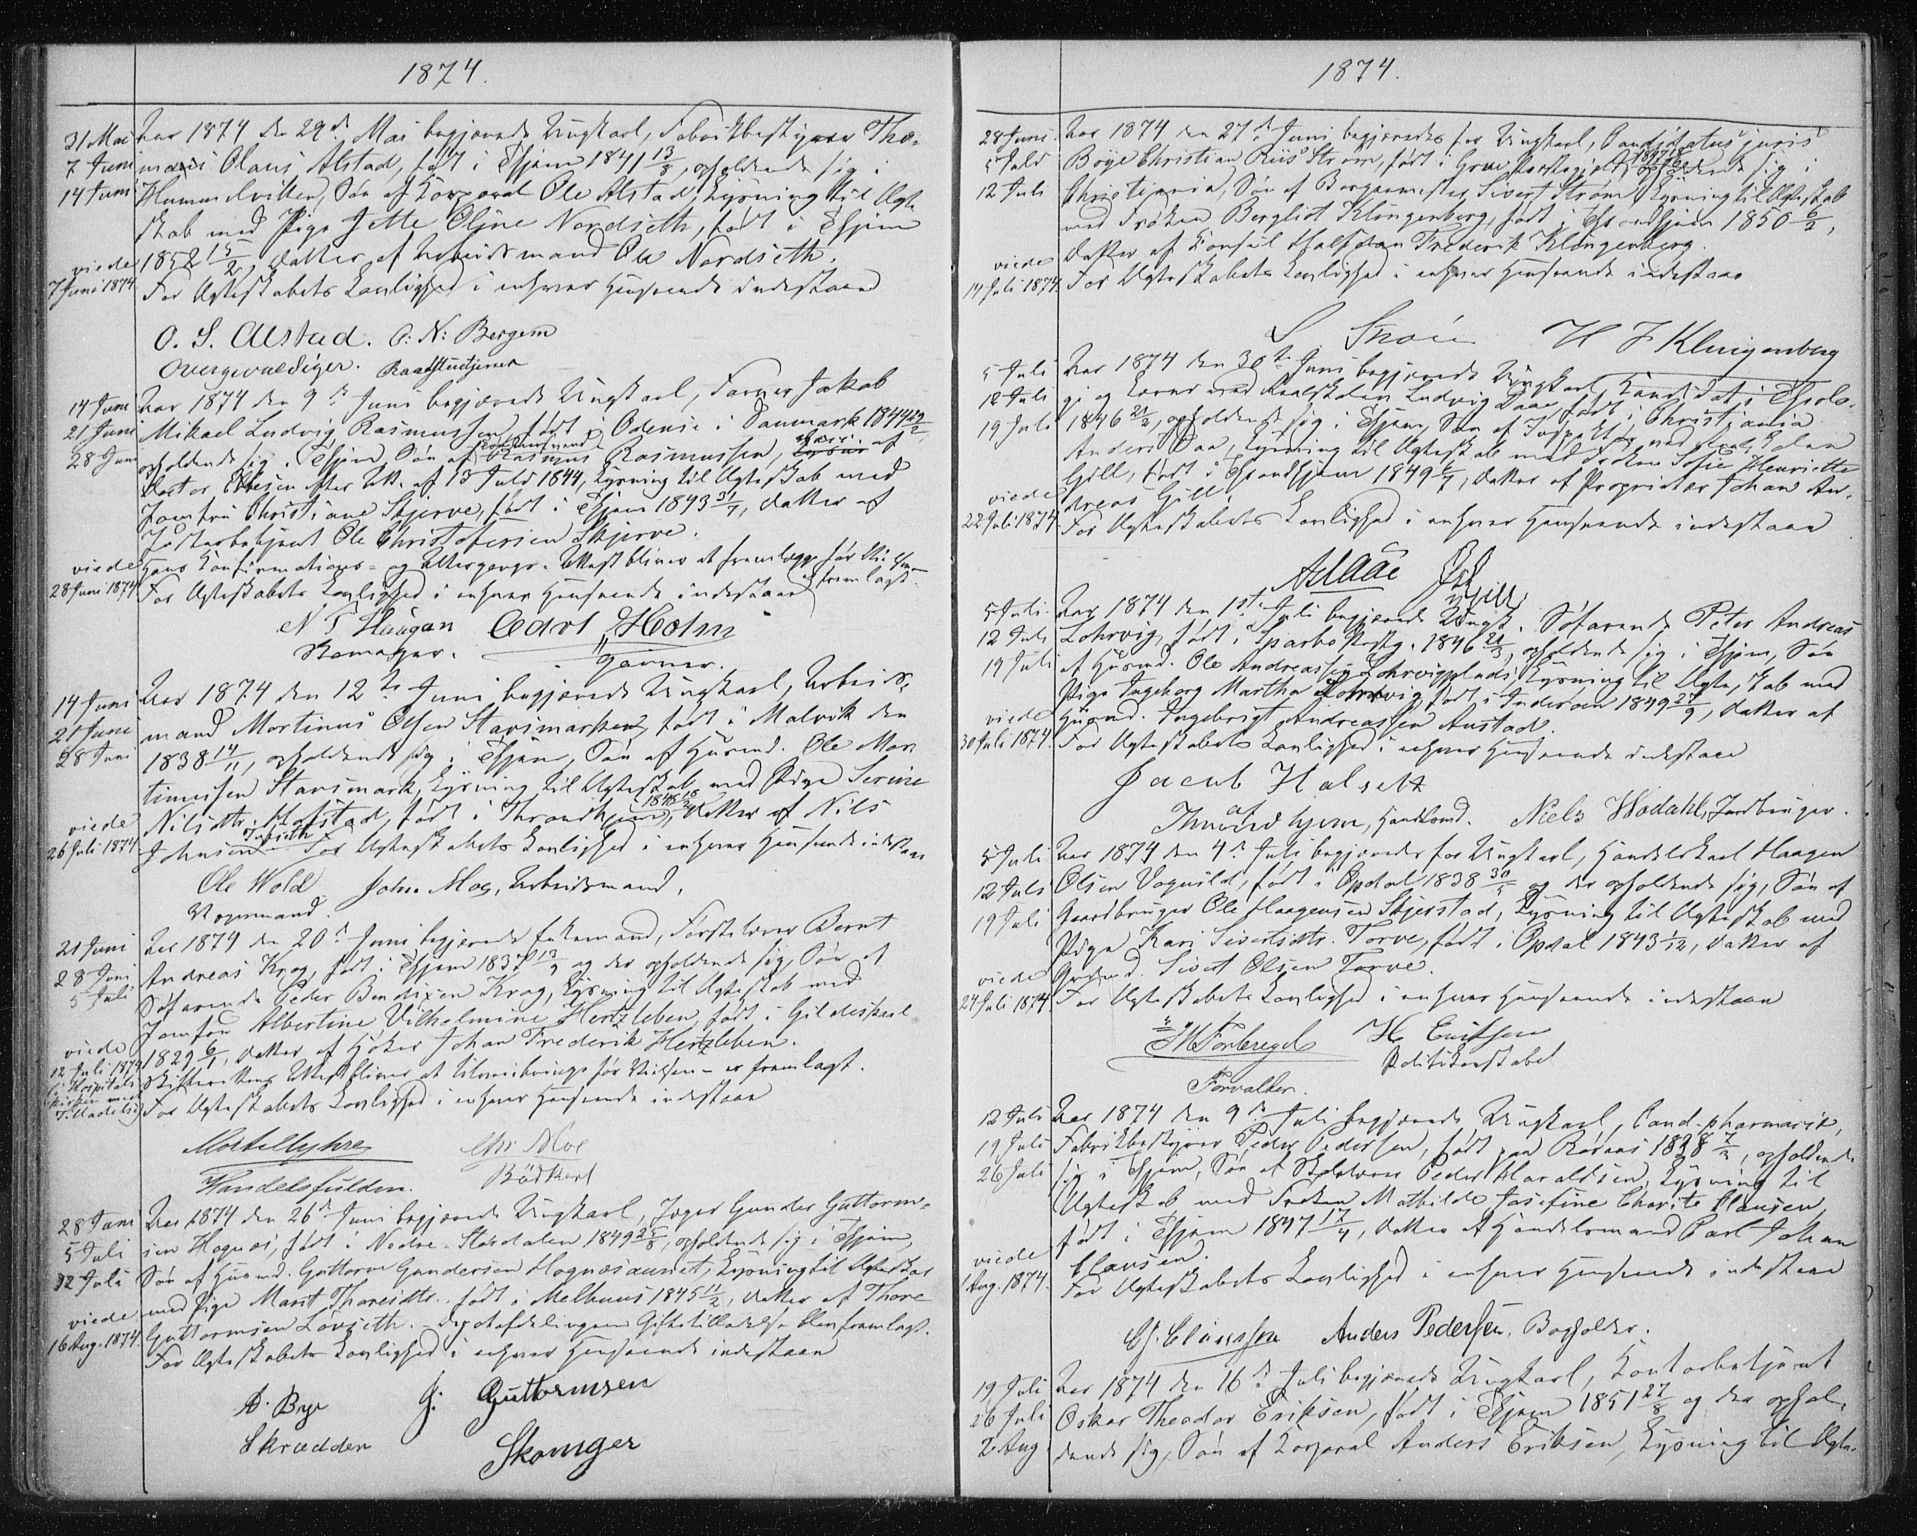 1874.
31 Mai
7 Juni
14 Juni
Aar 1874 den 29de Mai begjærede Ungkarl, Fabrikbestyrer Tho-
mas Olaus Alstad, født i Thjem 1841 13/8, opholdende sig i
Hammelvikken, Søn af Korporal Ole Alstad, Lysning til Ægte-
skab med Pige Jette Oline Nordseth, født i Thjem
1852 15/2, Datter af Arbeidsmand Ole Nordseth.
viede
7 Juni 1874
For Ægteskabets Lovlighed i enhver Henseende indestaae
O. S. Alstad. O: N: Bergem
Overgevaldiger. Raadstuetjener
14 Juni
21 Juni
28 Juni
Aar 1874 den 9de Juni begjærede Ungkarl, Farver Jakob
Mikael Ludvig Rasmussen født i Odense i Danmark 1844
opholdende sig i Thjem, Søn af Rasmus Rasmussen, af
13 Juli 1844, Lysning til Ægteskab med
Jomfru Christiane Skjerve, født i Thjem 1843 31/7, Datter af
Ole Christofersen Skjerve.
Hans Konfirmations- og Attest bliver at fremlægge før Vielsen
er fremlagt.
viede
28 Juni 1874
For Ægteskabets Lovlighed i enhver Henseende indestaae
N T Haugan Carl Holm
Skomager. Garver.
14 Juni
21 Juni
28 Juni
Aar 1874 den 12te Juni begjærede Ungkarl, Arbeids-
mand Mortinus Olsen Stavsmarken, født i Malvik den
1838 14/11, opholdende sig i Thjem, Søn af Husmd. Ole Mor-
tinussen Stavsmark, Lysning til Ægteskab med Pige Serine
Nilsdtr. Hofstad, født i Throndhjem, Datter af Nils
Johnsen
viede
26 Juli 1874
For Ægteskabets Lovlighed i enhver Henseende indestaae
Ole Wold John Moe, Arbeidsmand.
Vognmand.
21 Juni
28 Juni
5 Juli
Aar 1874 den 20de Juni begjærede Enkemand, Førstelærer Bernt
Andreas Krog, født i Thjem 1837 13/9 og der opholdende sig, Søn af
Søfarende Peder Bendixen Krog, Lysning til Ægteskab med
Jomfru Albertine Vilhelmine Hertzleben, født i Gildeskaal
1829 6/1, Datter af Høker Johan Frederik Hertzleben.
Skifterettens Attest bliver at tilveiebringe før Vielsen - er fremlagt.
viede
12 Juli 1874
i Hospitals
kirken med
Tilladelse
For Ægteskabets Lovlighed i enhver Henseende indestaae
Chr Moe
Handelsfuldm. Bødker
28 Juni
5 Juli
12 Juli
Aar 1874 den 26de Juni begjærede Ungkarl, Jæger Gunder Guttorm-
sen Hognæs, født i Nedre-Størdalen 1849 25/8, opholdende sig i Thjem,
Søn af Husmd. Guttorm Gundersen Hognæsaunet, Lysning til Ægteskab
med Pige Marit Thoresdtr. født i Melhuus 1845 11/2, Datter af Thore
Guttormsen Løvseth. - Depotafdelingens Giftetilladelse blev fremlagt.
viede
16 Aug. 1874
For Ægteskabets Lovlighed i enhver Henseende indestaae
A. Bye G. Guttormsen
Skrædder Skomger
1874.
28 Juni
5 Juli
12 Juli
Aar 1874 den 27de Juni begjæredes for Ungkarl, Candidatus juris
Böye Christian Riis Strøm, født i Grue Præstegjeld, opholdende sig i
Christiania, Søn af Bergmester Sivert Strøm, Lysning til Ægteskab
med Frøken Bergliot Klingenberg, født i Throndhjem 1850 6/2,
Datter af Konsul Halfdan Frederik Klingenberg.
viede
14 Juli 1874
For Ægteskabets Lovlighed i enhver Henseende indestaae
S Strøm H F Klingenberg
5 Juli
12 Juli
19 Juli
Aar 1874 den 30te Juni begjærede Ungkarl, Kandidat i Theolo-
gi og Lærer ved Realskolen Ludvig Daae født i Christiania
1846 21/2, opholdende sig i Thjem, Søn af
Anders Daa, Lysning til Ægteskab med Frøken Sofie Henriette
Gill, født i Throndhjem 1849 6/7, Datter af Proprietær Johan An-
dreas Gill.
viede
22 Juli 1874
For Ægteskabets Lovlighed i enhver Henseende indestaae
A Daae Gill
5 Juli
12 Juli
19 Juli
Aar 1874 den 1ste Juli begjærede Ungk. Søfarende Peter Andreas
Lohrvig, født i Sparbo Prstg. 1846, opholdende sig i Thjem, Søn
af Husmd. Ole Andreassen Lohrvigplads, Lysning til Ægteskab med
Pige Ingeborg Martha Lohrvig, født i Inderøen 1849 27/9, Datter af
Husmd. Ingebrigt Andreassen Austad.
viede
30 Juli 1874.
For Ægteskabets Lovlighed i enhver Henseende indestaae
Jacob Halseth
af
Throndhjem, Handlsmd. Niels Wodahl, Jordbruger.
5 Juli
12 Juli
19 Juli
Aar 1874 den 4de Juli begjæredes for Ungkarl, Handelskarl Haagen
Olsen Vognild, født i Opdal 1838 30/5 og der opholdende sig, Søn af
Gaardbruger Ole Haagensen Skjerstad, Lysning til Ægteskab med
Pige Kari Sivertsdtr. Torve, født i Opdal 1843 1/12, Datter af
Gaardmd. Sivert Olsen Torve.
viede
24 Juli 1874
For Ægteskabets Lovlighed i enhver Henseende indestaae
H Eriksen
Forvalter. Politikonstabel
12 Juli
19 Juli
26 Juli
Aar 1874 den 9de Juli begjærede Ungkarl, Cand. pharmacie,
Fabrikbestyrer Peder Pedersen, født paa Røraas 1838 7/2, opholdende
sig i Thjem, Søn af Skolelærer Peder Haraldsen, Lysning til
Ægteskab med Frøken Mathilde Josefine Charite Clausen,
født i Thjem 1847 17/4, Datter af Handelsmand Carl Johan
Clausen.
viede
1 Aug. 1874.
For Ægteskabets Lovlighed i enhver Henseende indestaae
Cj. Claussen Anders Pedersen, Bogholder.
19 Juli
26 Juli
2 Aug
Aar 1874 den 16de Juli begjærede Ungkarl, Kontorbetjent
Oskar Theodor Eriksen, født i Thjem 1851 27/8 og der ophol-
dende sig, Søn af Korporal Anders Eriksen, Lysning til Ægte-